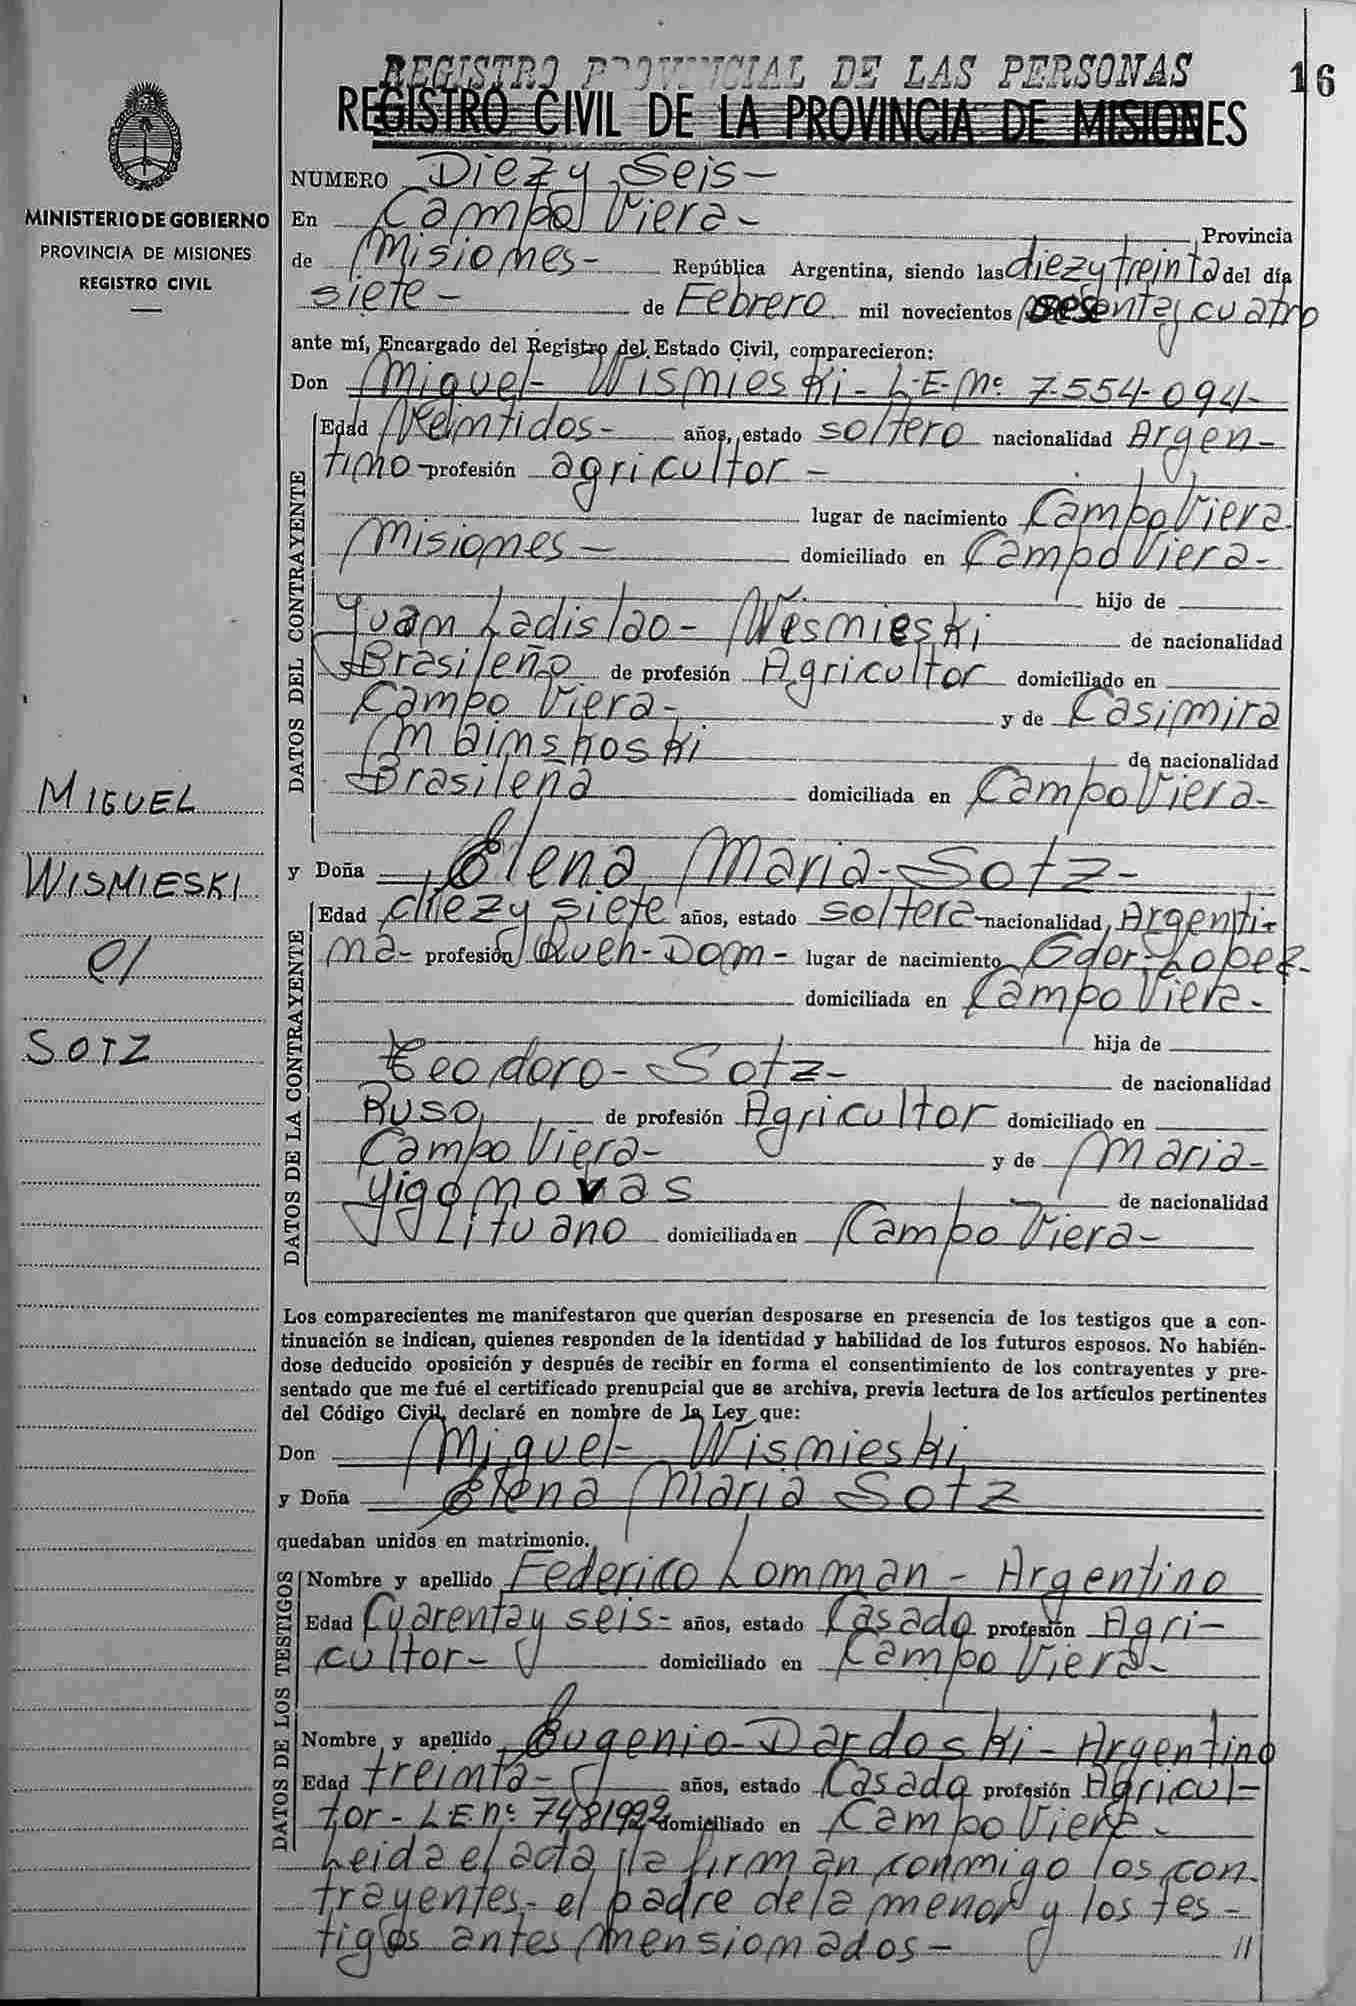 REGISTRO PROVINCIAL DE LAS PERSONAS
16
REGISTRO CIVIL DE LA PROVINCIA DE MISIONES
MINISTERIO DE GOBIERNO
PROVINCIA DE MISIONES
REGISTRO CIVIL
NUMERO Diez y Seis -
En Campo Viera - Provincia
de Misiones - República Argentina, siendo las diez y treinta del día
siete - de Febrero mil novecientos sesenta y cuatro
ante mí, Encargado del Registro del Estado Civil, comparecieron:
Don Miguel - Wismieski - L-E-Nº 7.554-094-
DATOS DEL CONTRAYENTE
Edad Veintidos - años, estado soltero nacionalidad Argen-
tino - profesión agricultor -
lugar de nacimiento Campo Viera
Misiones - domiciliado en Campo Viera -
hijo de
Juan Ladislao - Wismieski de nacionalidad
Brasileño de profesión Agricultor domiciliado en
Campo Viera - y de Casimira
de nacionalidad
Brasileña domiciliada en Campo Viera -
y Doña Elena Maria - Sotz -
DATOS DE LA CONTRAYENTE
Edad diez y siete años, estado soltera - nacionalidad Argenti-
na - profesión Queh-Dom - lugar de nacimiento Gder-Lopez-
domiciliada en Campo Viera -
hija de
Teodoro - Sotz - de nacionalidad
Ruso de profesión Agricultor domiciliado en
Campo Viera - y de Maria -
Yigonovas de nacionalidad
Lituano domiciliada en Campo Viera -
Los comparecientes me manifestaron que querían desposarse en presencia de los testigos que a con-
tinuación se indican, quienes responden de la identidad y habilidad de los futuros esposos. No habién-
dose deducido oposición y después de recibir en forma el consentimiento de los contrayentes y pre-
sentado que me fué el certificado prenupcial que se archiva, previa lectura de los artículos pertinentes
del Código Civil, declaré en nombre de la Ley que:
Don Miguel - Wismieski
y Doña Elena Maria Sotz
quedaban unidos en matrimonio.
DATOS DE LOS TESTIGOS
Nombre y apellido Federico Lomman - Argentino
Edad Cuarenta y seis - años, estado Casado profesión Agri-
cultor - domiciliado en Campo Viera -
Nombre y apellido Eugenio - Dardoski - Argentino
Edad treinta - años, estado Casado profesión Agricul-
tor - L.E.nº 7481922 domiciliado en Campo Viera -
Leida el acta la firman conmigo los con-
trayentes - el padre de la menor y los tes-
tigos antes mensionados - //
MIGUEL
WISMIESKI
c/
SOTZ